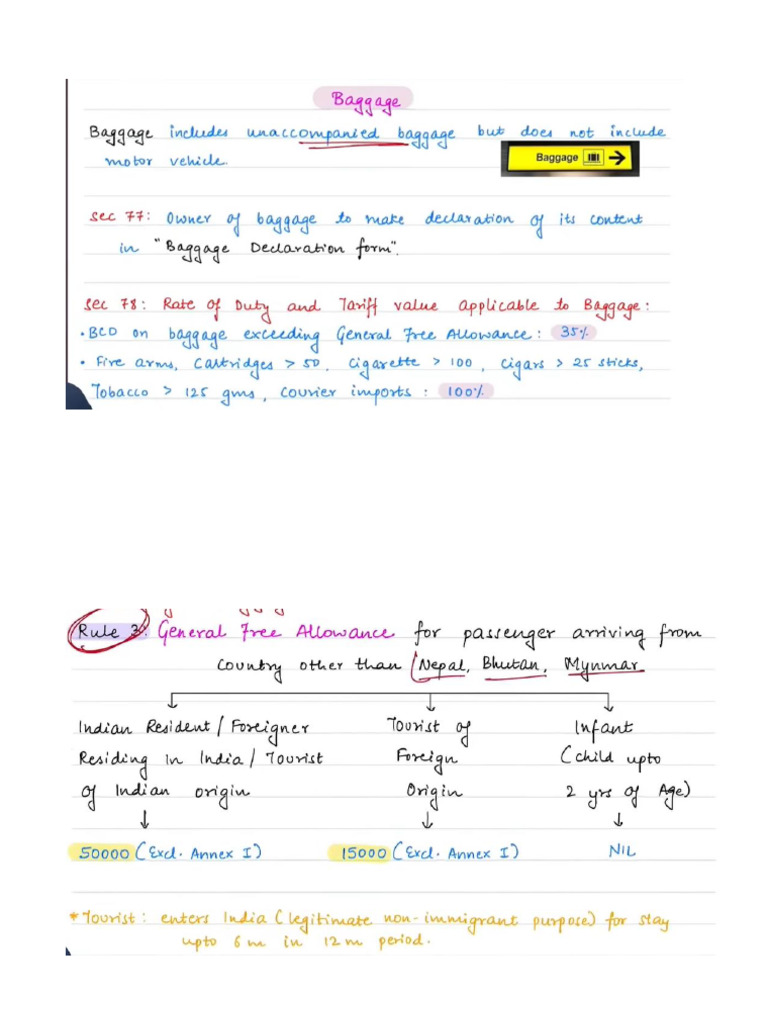 Baggage
Baggage includes unaccompanied baggage but does not include
motor vehicle.
Baggage
Sec 77: Owner of baggage to make declaration of its content
in "Baggage Declaration form".
Sec 78: Rate of Duty and Tariff value applicable to Baggage:
• BCD on baggage exceeding General Free Allowance: 35%
• Fire arms, Cartridges > 50, Cigarette > 100, Cigars > 25 sticks,
Tobacco > 125 gms, Courier imports: 100%
Rule 3: General Free Allowance for passenger arriving from
country other than (Nepal, Bhutan, Mynmar
Indian Resident/Foreigner
Residing in India/Tourist
Of Indian origin
Tourist of
Foreign
Origin
Infant
(child upto
2 yrs of Age)
50000 (Excl. Annex I)
15000 (Excl. Annex I)
NIL
*Tourist: enters India (legitimate non-immigrant purpose) for stay
upto 6m in 12m period.